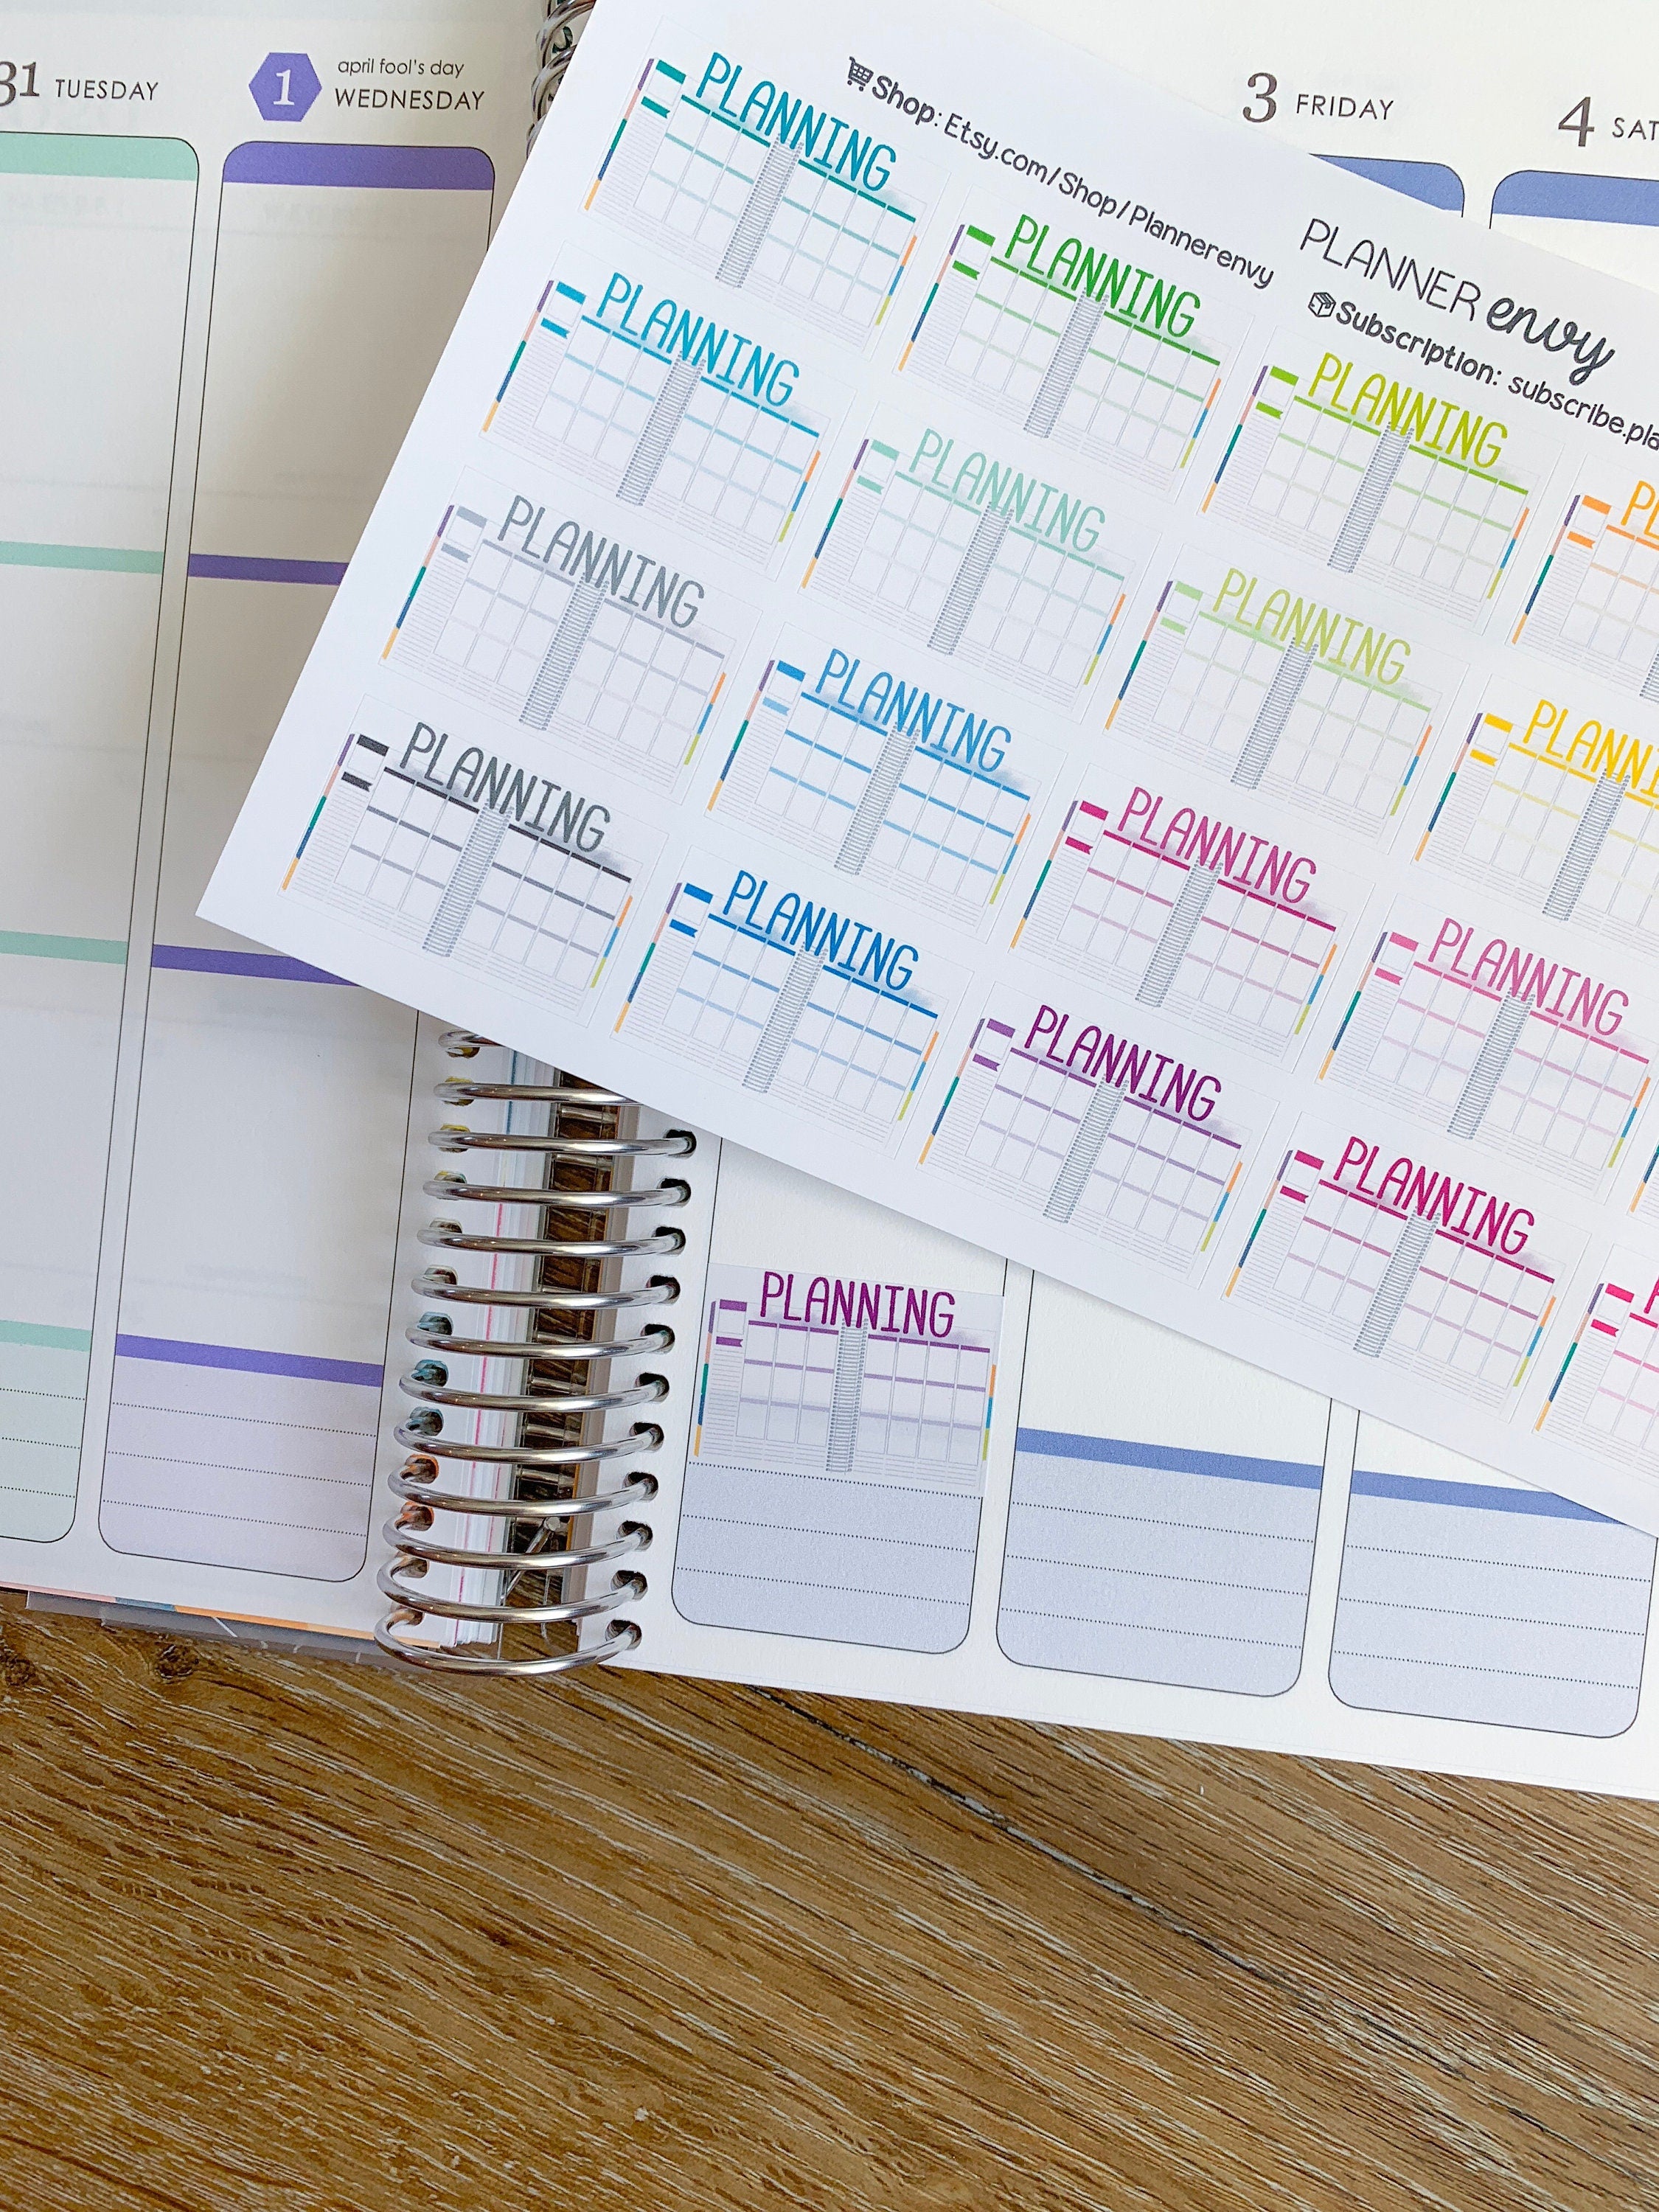 31 TUESDAY
1 april fool's day
WEDNESDAY
3 FRIDAY
4 SAT
Shop: Etsy.com/Shop/Plannerenvy
PLANNER envy
Subscription: subscribe.pla
PLANNING
PLANNING
PLANNING
PL
PLANNING
PLANNING
PLANNING
PLANNI
PLANNING
PLANNING
PLANNING
PLANNING
PLANNING
PLANNING
PLANNING
PLANNING
PLANNING